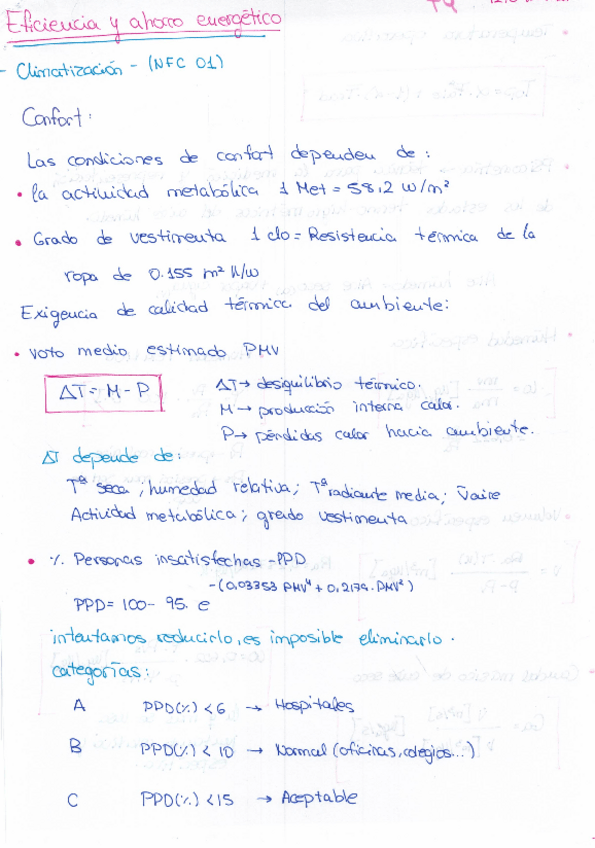 Eficiencia y ahorro energético
- Climatización - (NFC 01)
Confort:
Las condiciones de confort dependen de:
• la actividad metabólica 1 Met = 58,2 W/m²
• Grado de vestimenta 1 clo = Resistencia térmica de la
ropa de 0.155 m² K/W
Exigencia de calidad térmica del ambiente:
• Voto medio estimado PMV
ΔT = M - P
ΔT → desiquilibrio térmico.
M → producción interna calor.
P → pérdidas calor hacia ambiente.
ΔT depende de:
Tª seca; humedad relativa; Tª radiante media; Vaire
Actividad metabólica; grado vestimenta
• % Personas insatisfechas - PPD
-(0,03353 PMV⁴ + 0,2179. PMV²)
PPD = 100 - 95. e
intentamos reducirlo, es imposible eliminarlo.
categorías:
A PPD(%) < 6 → Hospitales
B PPD(%) < 10 → Normal (oficinas, colegios...)
C PPD(%) < 15 → Aceptable